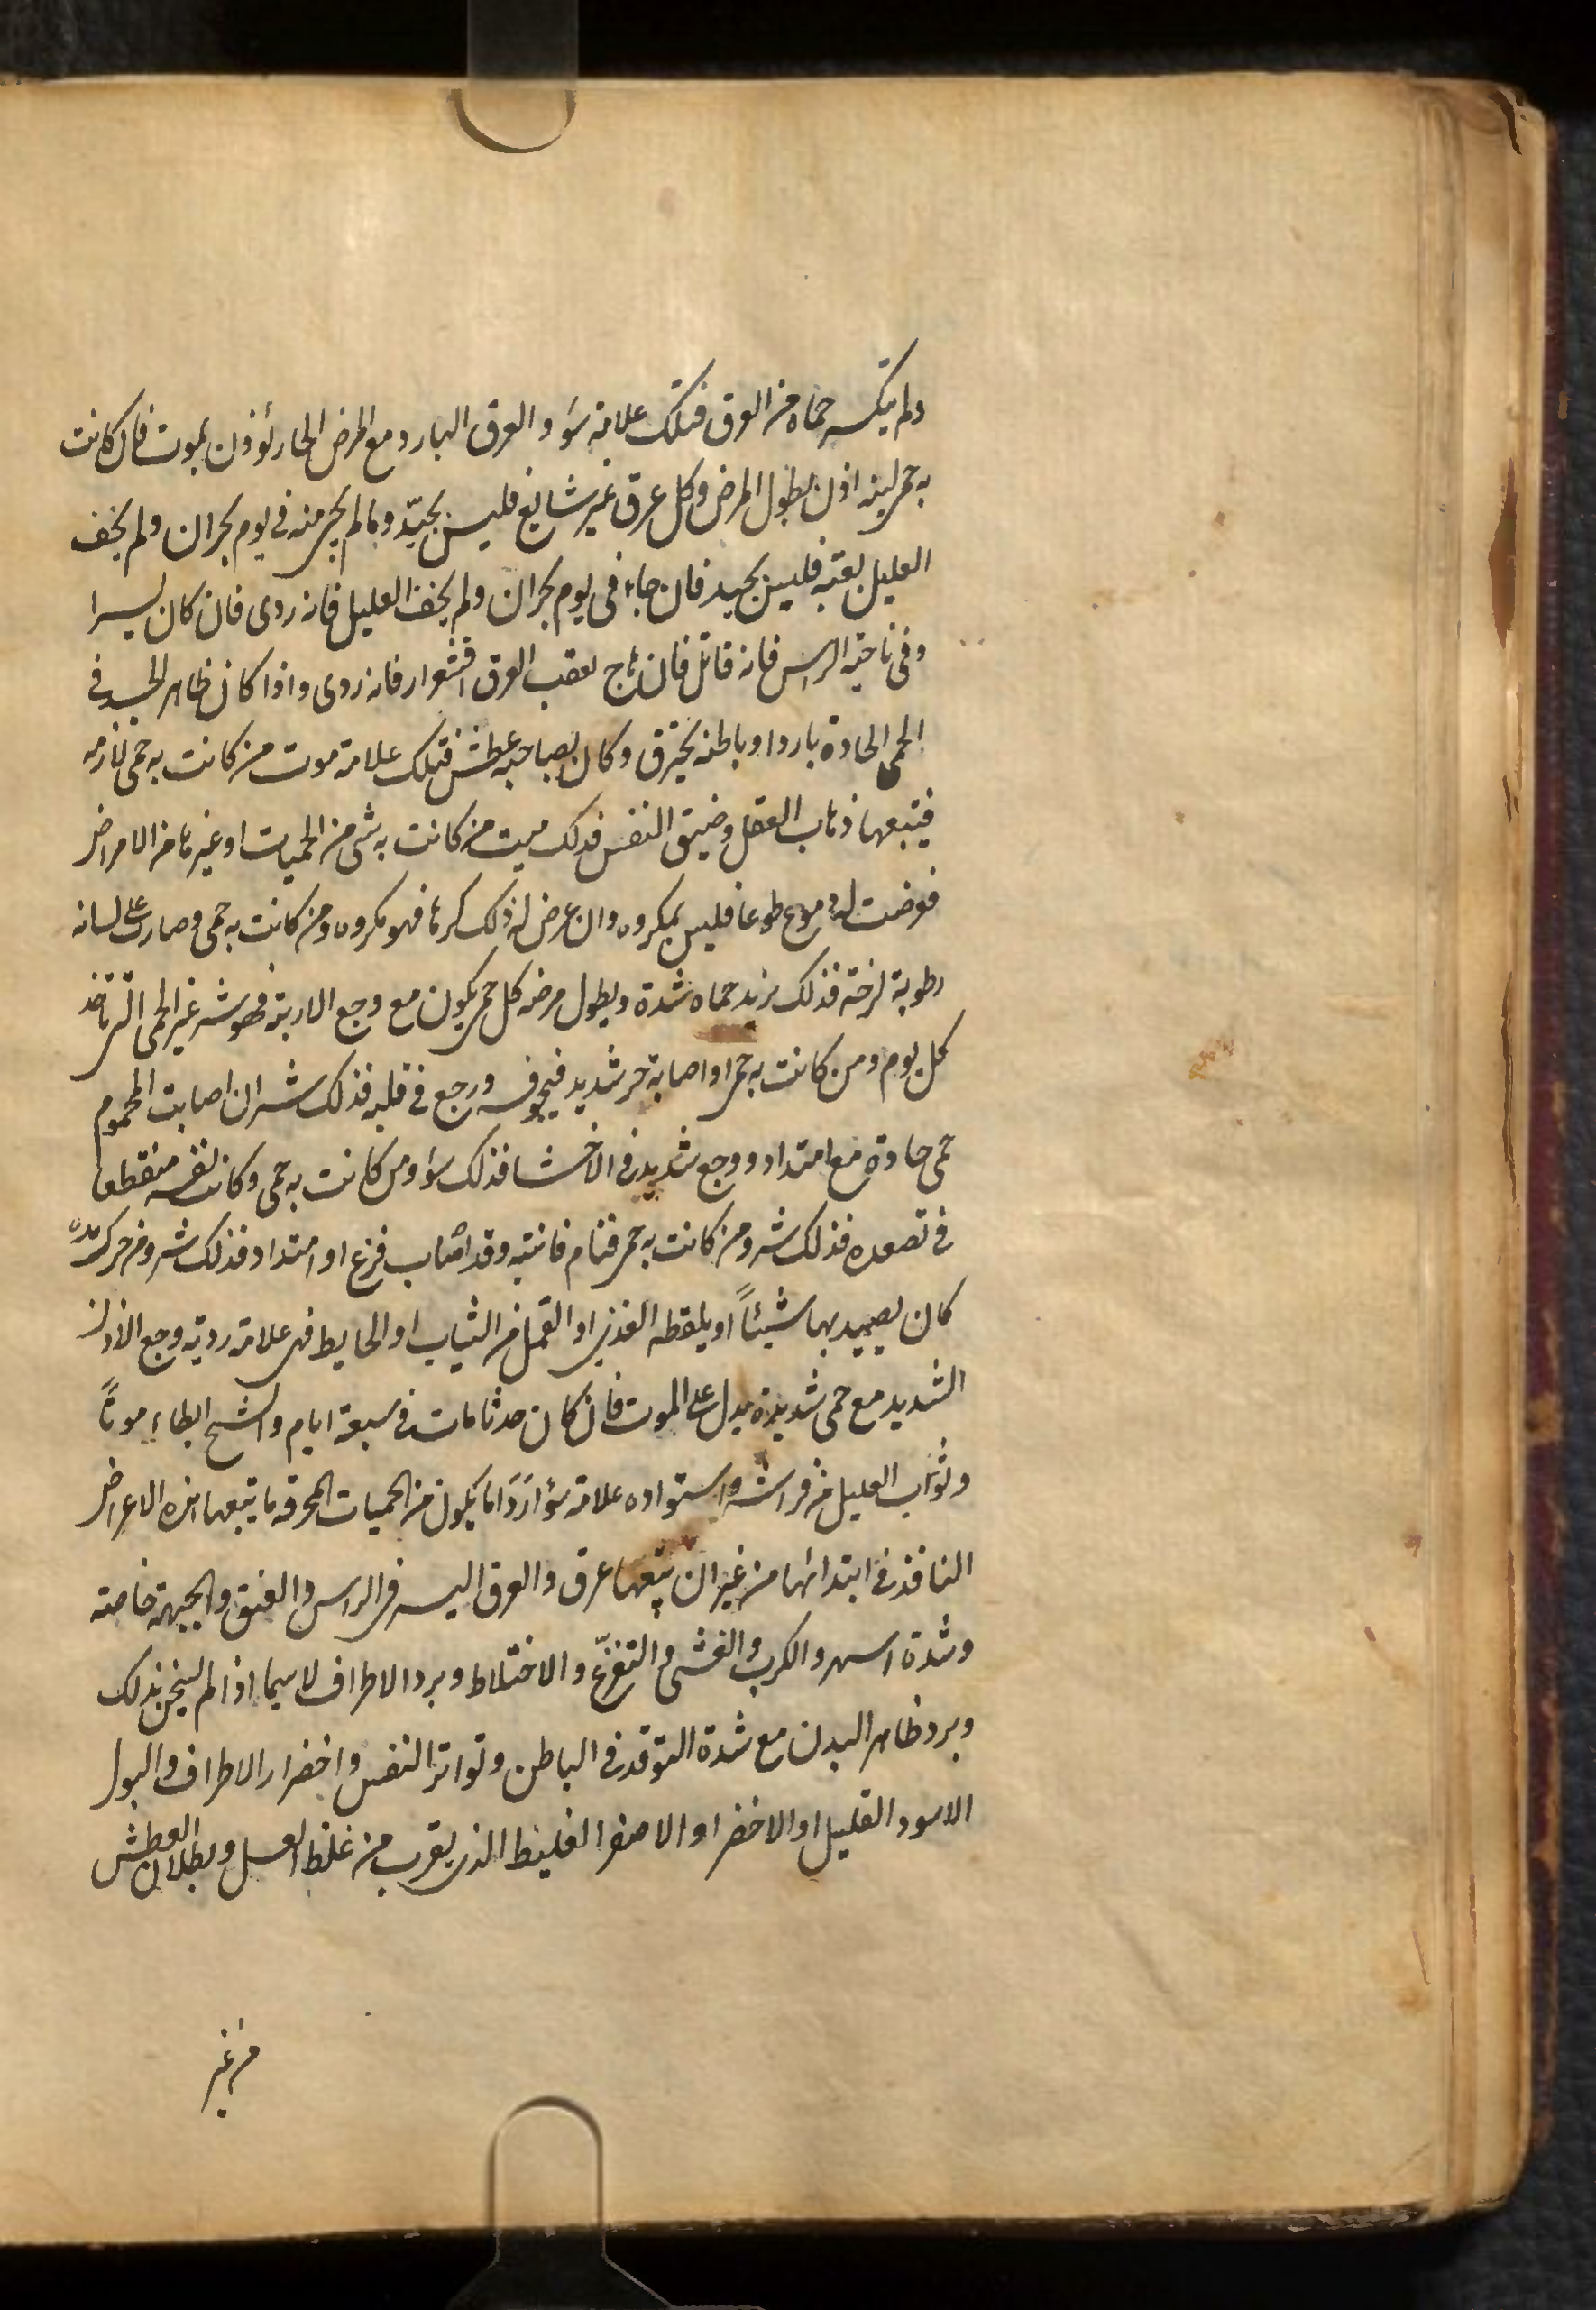 ولم ينكسر حماه من العرق فتلك علامة سوء والعرق البارد مع المرض الحار يؤذن بموت فان كانت
به حمى لينه اذن بطول المرض وكل عرق غير شايع فليس بجيّد ومالم يجى منه فى يوم بحران ولم يخف
العليل بعقبه فليس بجيد فان جاء فى يوم بحران ولم يخف العليل فانه ردى فان كان يسيرا
وفى ناحية الراس فانه قاتل فان هاج بعقب العرق اقشعرار فانه ردى واذا كان ظاهر الجسد فى
الحمى الحادة باردا وباطنه يحترق وكان بصاحبه عطش فتلك علامة موت من كانت به حمى لازمه
فيتبعها ذهاب العقل وضيق النفس فذلك ميت من كانت به شى من الحميات او غيرها من الامراض
فعرضت له دموع طوعا فليس بمكروه وان عرض له ذلك كرها فهو مكروه ومن كانت به حمى وصار على لسانه
رطوبة لزجة فذلك يزيد حماه شدة ويطول مرضه كل حمى يكون مع وجع الاربية فهو شر غير الحمى التى تاخذ
كل يوم ومن كانت به حمى او اصابة حر شديد فى جوفه ورجع فى قلبه فذلك شر ان اصابت المحموم
حمى حادة مع امتداد ووجع شديد فى الاحشا فذلك سوء ومن كانت به حمى وكان نفسه منقطعا
فى تصعده فذلك شر ومن كانت به حمى فنام فانتبه وقد اصاب فزع او امتداد فذلك شر ومن حرك يده
كان يصيد بها شيئاً او يلقطه القذى او القمل من الثياب او الحايط فهى علامة ردية وجع الاذن
الشديد مع حمى شديدة يدل على الموت فان كان حدثا مات فى سبعة ايام والشيخ ابطاء موتاً
وثواب العليل من فراشه واستواده علامة سؤ اردا ما يكون من الحميات المحرقه ما يتبعها هذه الاعراض
النافذ فى ابتدائها من غير ان يتبعها عرق والعرق اليسر فى الراس والعنق والجبهة خاصته
وشدة السهر والكرب والغشى والتفزّع والاختلاط وبرد الاطراف لاسيما اذا لم يسخن بذلك
وبرد ظاهر البدن مع شدة التوقد فى الباطن وتواتر النفس واخضرار الاطراف والبول
الاسود القليل او الاخضر او الاصفر الغليظ الذى يقرب من غلظ العسل وبطلان العطش
من غير